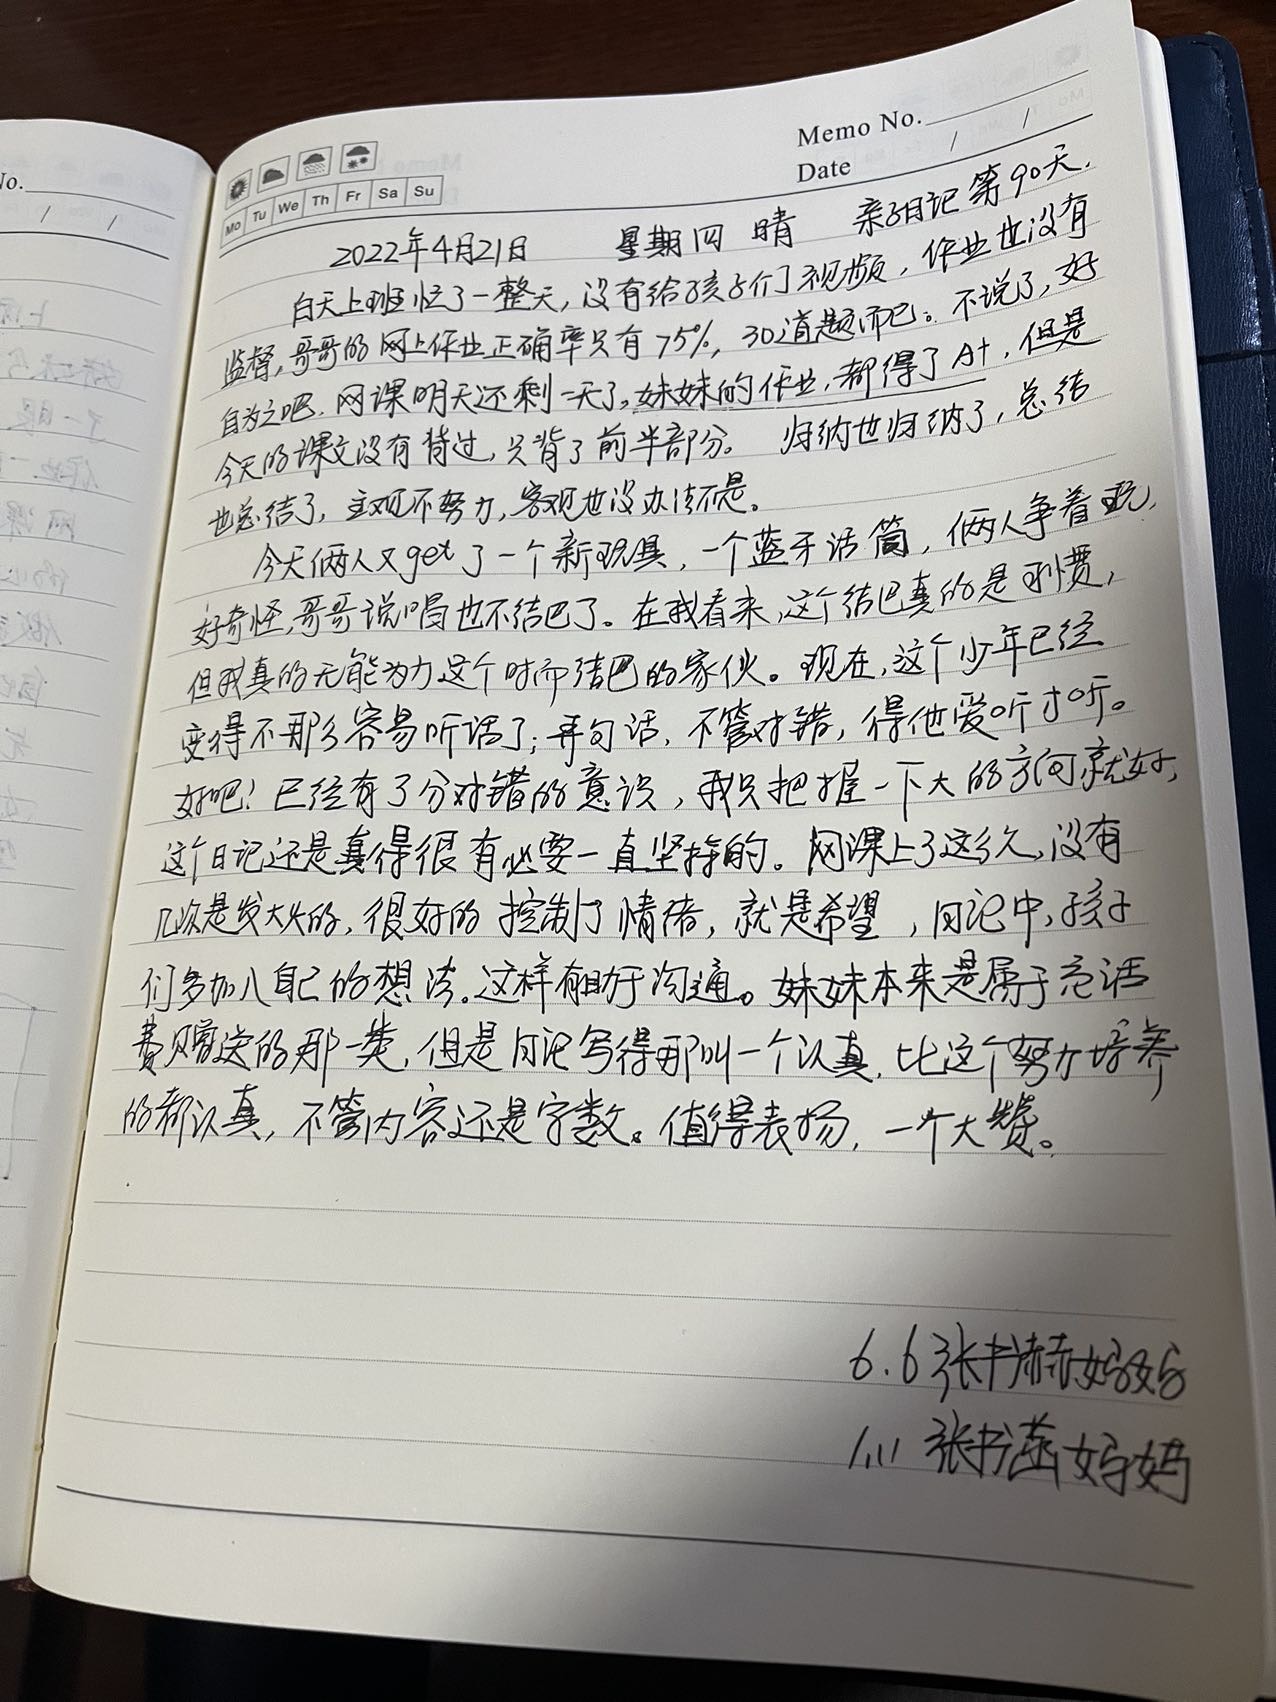 No.
/ /
Memo No.
Date / /
Mo Tu We Th Fr Sa Su
2022年4月21日 星期四 晴 亲子日记第90天.
白天上班忙了一整天,没有给孩子们了视频,作业也没有
监督,哥哥的网上作业正确率只有75%,30道题而已。不说了,好
自为之吧.网课明天还剩一天了,妹妹的作业,都得了A+,但是
今天的课文没有背过,只背了前半部分。归纳也归纳了,总结
也总结了,主观不努力,客观也没办法不是。
今天俩人又get了一个新玩具,一个蓝牙话筒,俩人争着玩,
好奇怪,哥哥说唱也不结巴了。在我看来,这个结巴真的是习惯,
但我真的无能为力这个时而结巴的家伙。现在,这个少年已经
变得不那么容易听话了;再句话,不管对错,得他爱听才听。
好吧!已经有了分对错的意识,我只把握一下大的方向就好,
这个日记还是真得很有必要一直坚持的。网课上了这么久,没有
几次是发大火的,很好的控制了情绪,就是希望,日记中,孩子
们多加入自己的想法.这样有助于沟通。妹妹本来是属于充话
费赠送的那一类,但是日记写得那叫一个认真,比这个努力培养
的都认真,不管内容还是字数。值得表扬,一个大赞。
6.6张书赫妈妈
1.11 张书菡妈妈